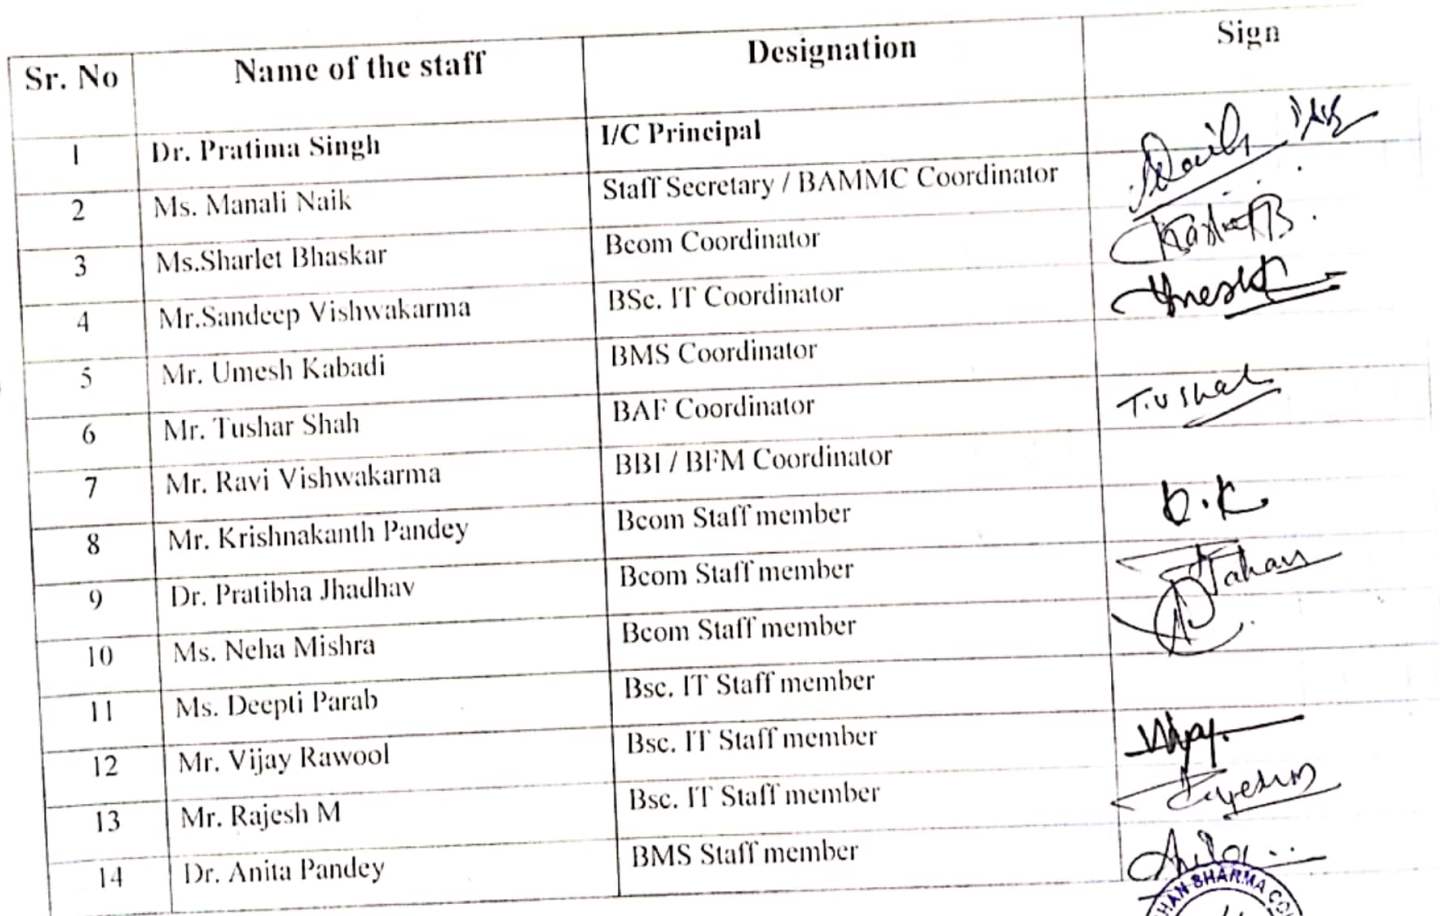 Sr. No Name of the staff Designation Sign
1 Dr. Pratima Singh I/C Principal
2 Ms. Manali Naik Staff Secretary / BAMMC Coordinator
3 Ms.Sharlet Bhaskar Bcom Coordinator
4 Mr.Sandeep Vishwakarma BSc. IT Coordinator
5 Mr. Umesh Kabadi BMS Coordinator
6 Mr. Tushar Shah BAF Coordinator T.ushah
7 Mr. Ravi Vishwakarma BBI / BFM Coordinator
8 Mr. Krishnakanth Pandey Bcom Staff member
9 Dr. Pratibha Jhadhav Bcom Staff member
10 Ms. Neha Mishra Bcom Staff member
11 Ms. Deepti Parab Bsc. IT Staff member
12 Mr. Vijay Rawool Bsc. IT Staff member
13 Mr. Rajesh M Bsc. IT Staff member
14 Dr. Anita Pandey BMS Staff member
HAN SHARMA CO